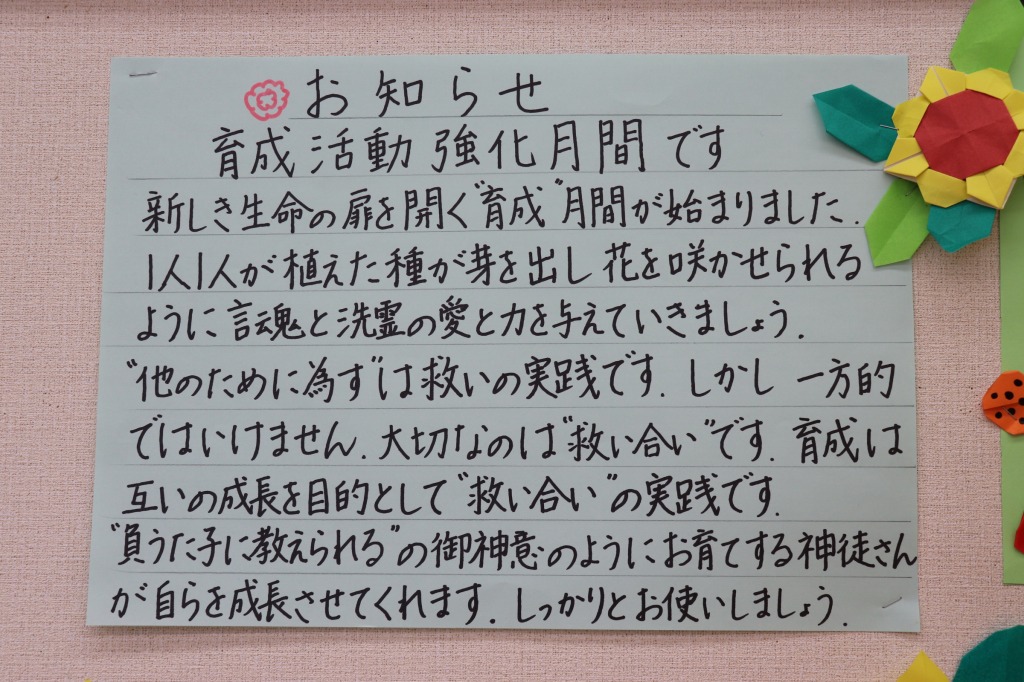 お知らせ
育成活動強化月間です
新しき生命の扉を開く"育成"月間が始まりました.
1人1人が植えた種が芽を出し花を咲かせられる
ように言魂と洗霊の愛と力を与えていきましょう.
"他のために為す"は救いの実践です.しかし一方的
ではいけません.大切なのは"救い合い"です.育成は
互いの成長を目的として"救い合い"の実践です.
"負うた子に教えられる"の御神意のようにお育てする神徒さん
が自らを成長させてくれます.しっかりとお使いしましょう.